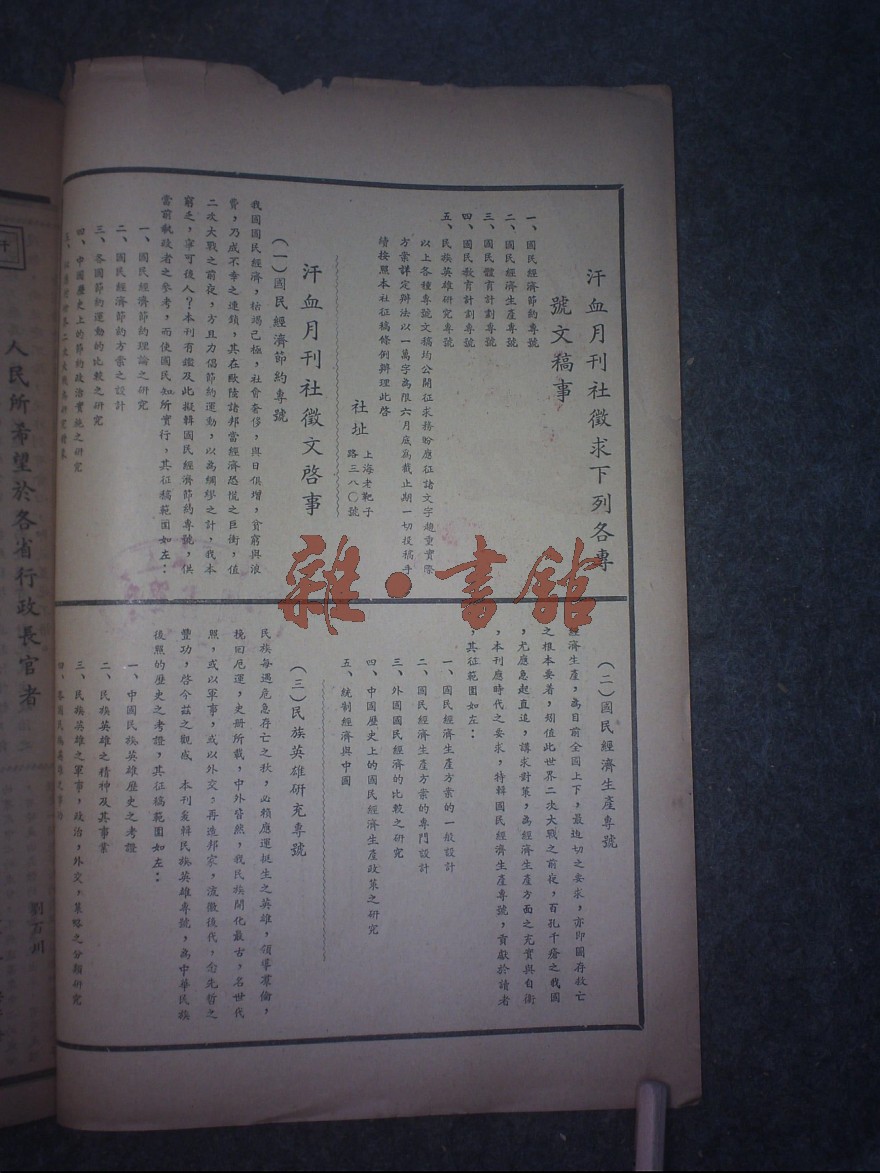 汗血月刊社徵求下列各專
號文稿事
一、國民經濟節約專號
二、國民經濟生產專號
三、國民體育計劃專號
四、國民教育計劃專號
五、民族英雄研究專號
以上各種專號文稿均公開征求務盼應征諸文字趨重實際
方案詳定辦法以一萬字為限六月底為截止期一切投稿手
續按照本社征稿條例辦理此啓
社址
上海老靶子
路三八〇號
汗血月刊社徵文啓事
(一)國民經濟節約專號
我國國民經濟,枯竭已極,社會奢侈,與日俱增,貧窮與浪
費,乃成不幸之連鎖,其在歐陸諸邦當經濟恐慌之巨衝,值
二次大戰之前夜,方且力倡節約運動,以為綢繆之計,我本
窮乏,寧可後人?本刊有鑑及此擬輯國民經濟節約專號,供
當前執政者之參考,而使國民知所實行,其征稿範圍如左:
一、國民經濟節約理論之研究
二、國民經濟節約方案之設計
三、各國節約運動的比較之研究
四、中國歷史上的節約政治實施之研究
(二)國民經濟生產專號
經濟生產,為目前全國上下,最迫切之要求,亦即圖存救亡
之根本要著,矧值此世界二次大戰之前夜,百孔千瘡之我國
,尤應急起直追,講求對策,為經濟生產方面之充實與自衛
,本刊應時代之要求,特輯國民經濟生產專號,貢獻於讀者
,其征範圍如左:
一、國民經濟生產方案的一般設計
二、國民經濟生產方案的專門設計
三、外國國民經濟的比較之研究
四、中國歷史上的國民經濟生產政策之研究
五、統制經濟與中國
(三)民族英雄研充專號
民族每遇危急存亡之秋,必賴應運挺生之英雄,領導羣倫,
挽回厄運,史冊所載,中外皆然,我民族開化最古,名世代
照,或以軍事,或以外交,再造邦家,流徽後代,念先哲之
豐功,啓今茲之觀感 本刊爰輯民族英雄專號,為中華民族
後照的歷史之考證,其征稿範圍如左:
一、中國民族英雄歷史之考證
二、民族英雄之精神及其事業
三、民族英雄之軍事,政治,外交,策略之分類研究
人民所希望於各省行政長官者
劉百川
雜·書館